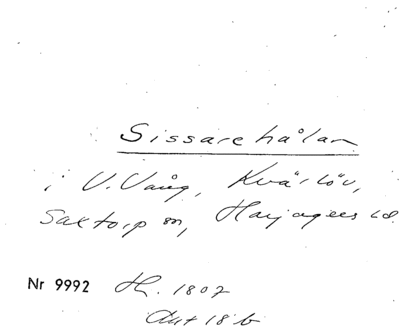 Sissarehålan
i V. Vång, Kvärlöv,
Saxtorp sn, Harjagers hd.
Nr 9992 H. 1807
Akt 18 b